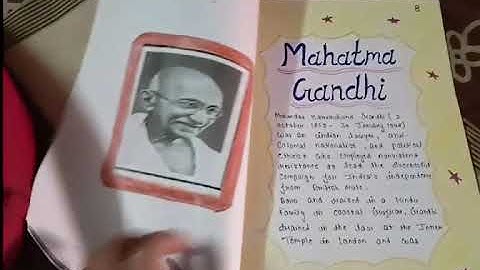 8
Mahatma
Gandhi
Gandhi (2
october
was an indian lawyer, anti-
Colonial nationalist and political
employed nonviolent
resistance to lead the successful
campaign for India's independence
from British Rule.
Born and raised in a Hindu
family in coastal Gujarat, Gandhi
in the law at the Inner
Temple in London and was